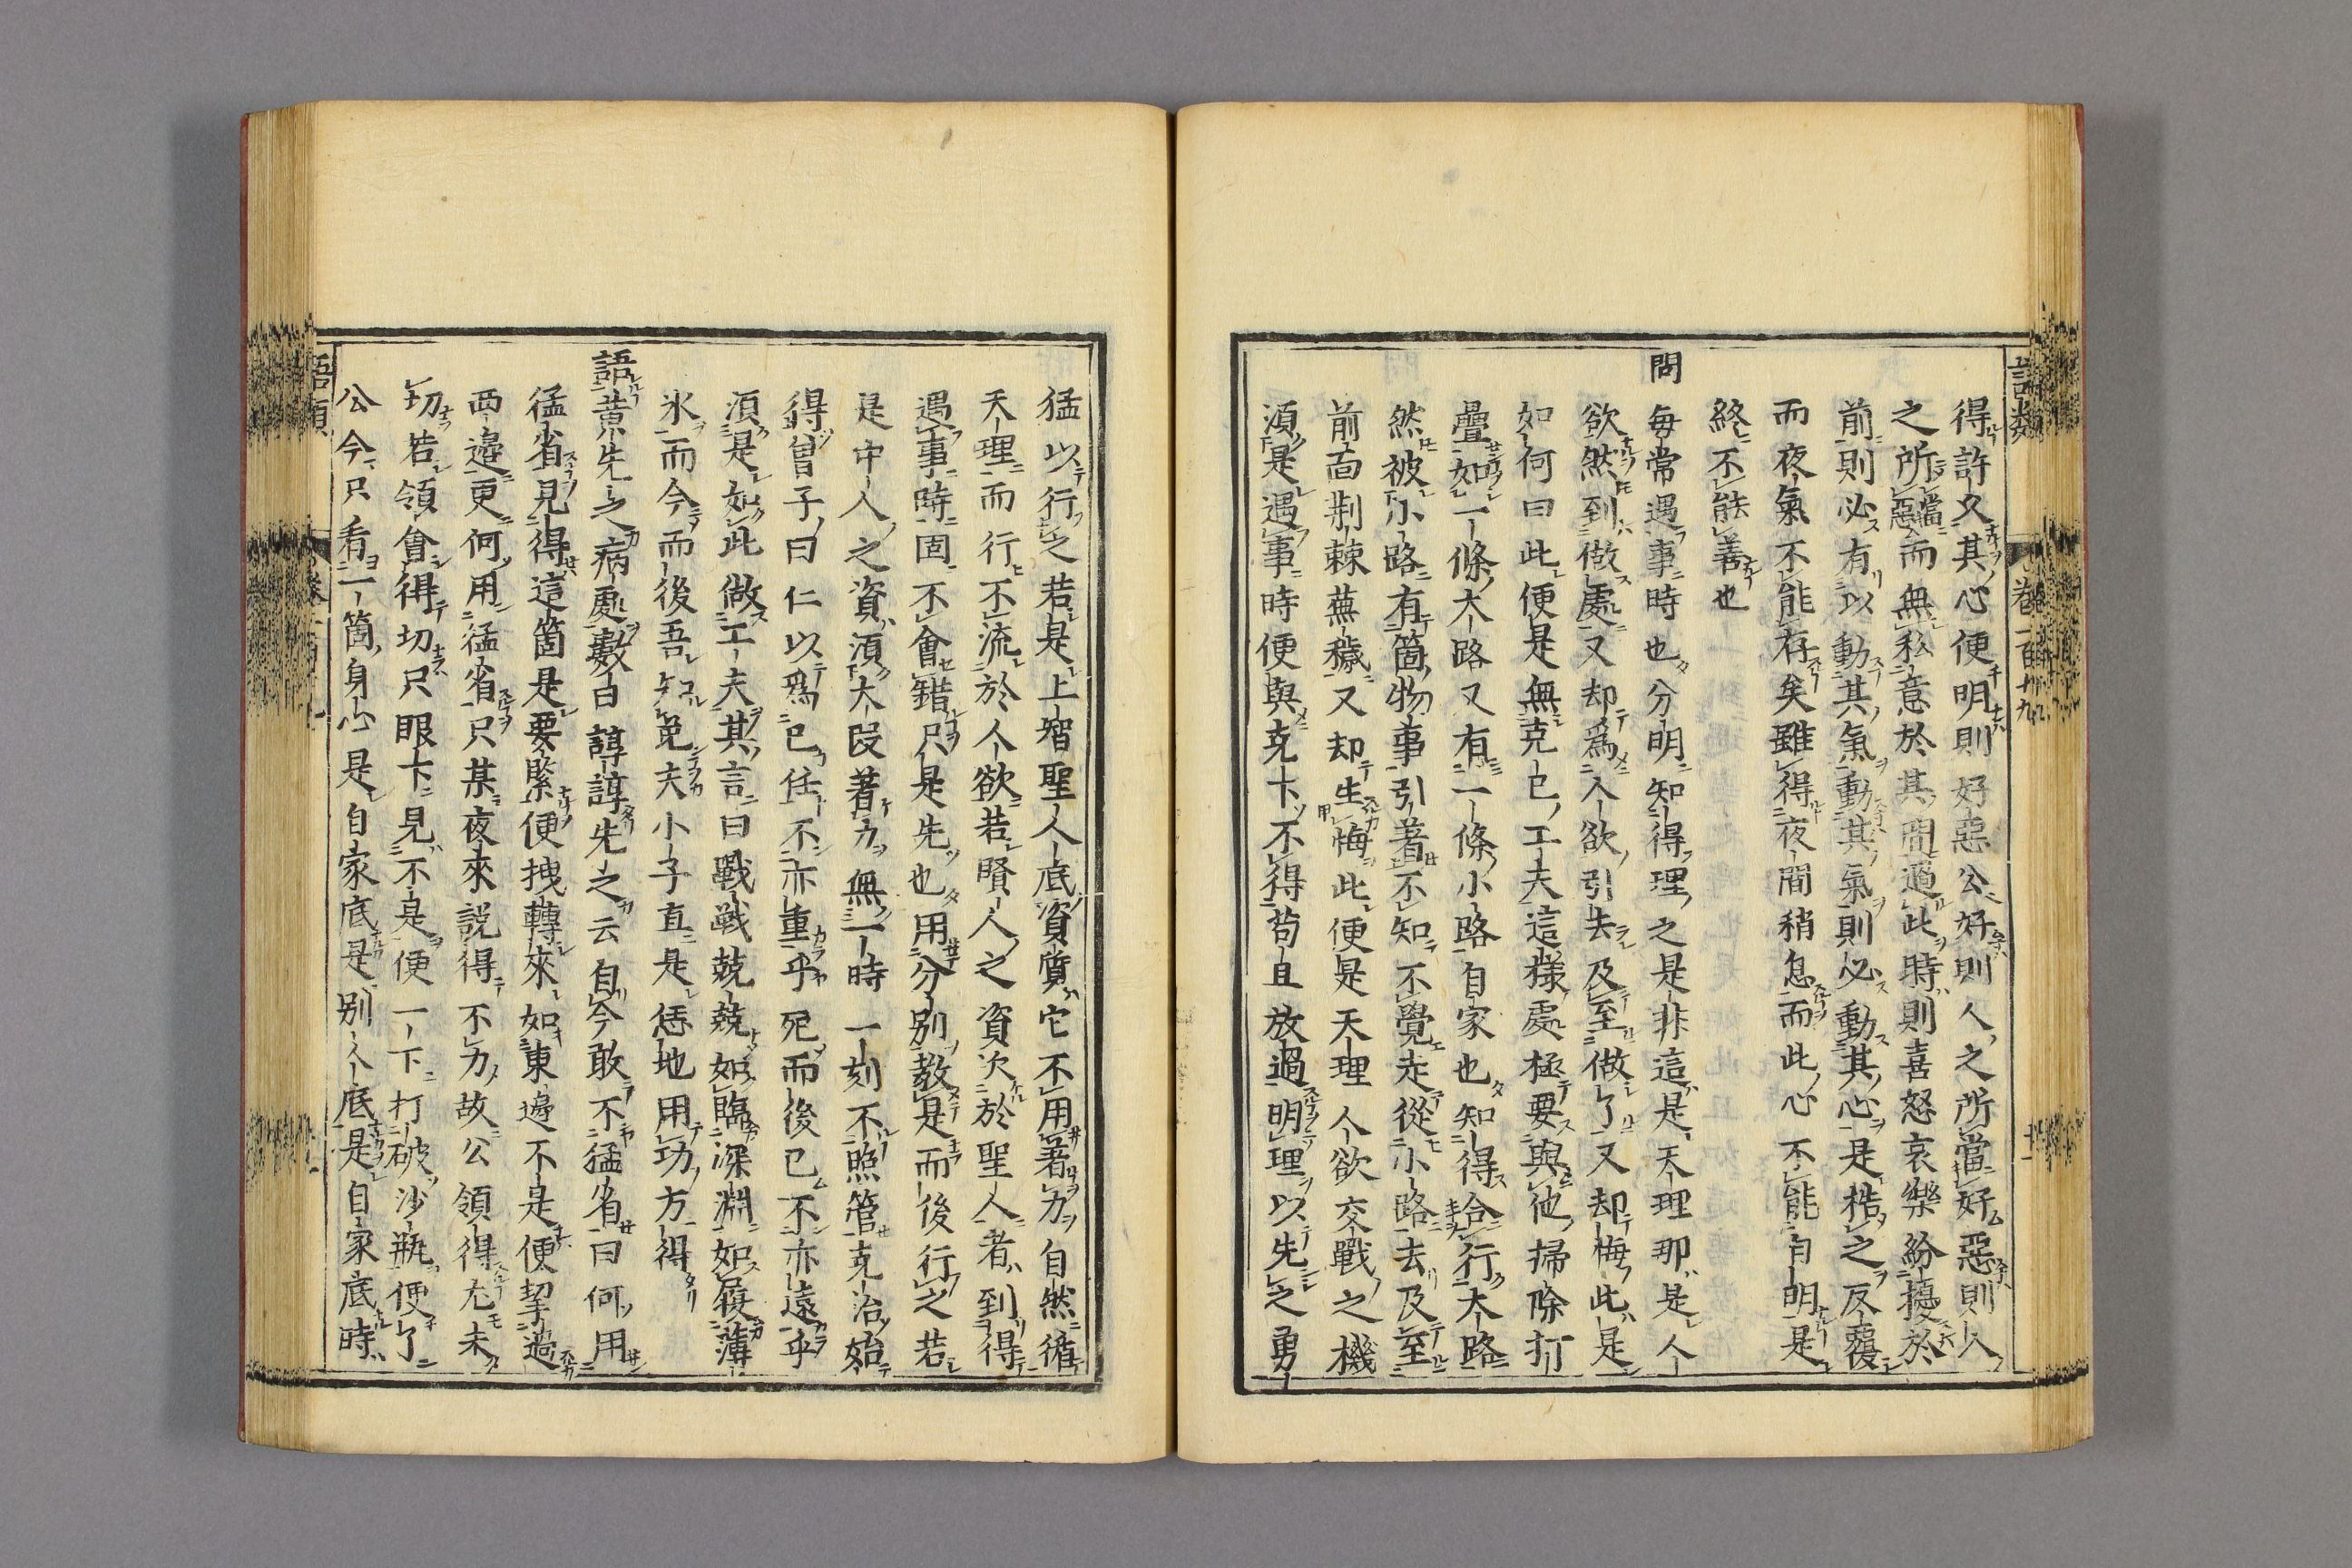 語類 卷一百十九 十一
得許久其心便明則好惡公好則人之所當好惡則人
之所當惡而無私意於其間過此時則喜怒哀樂紛擾於
前則必有以動其氣動其氣則必動其心是梏之反覆
而夜氣不能存矣雖得夜間稍息而此心不能自明是
終不能善也
問每常遇事時也分明知得理之是非這是天理那是人
欲然到做處又却爲人欲引去及至做了又却悔此是
如何曰此便是無克已工夫這樣處極要與他掃除打
疊如一條大路又有一條小路自家也知得合行大路
然被小路有箇物事引著不知不覺走從小路去及至
前面荆棘蕪穢又却生悔此便是天理人欲交戰之機
須是遇事時便與克下不得苟且放過明理以先之勇
猛以行之若是上智聖人底資質它不用著力自然循
天理而行不流於人欲若賢人之資次於聖人者到得
遇事時固不會錯只是先也用分別教是而後行之若
是中人之資須大段著力無一時一刻不照管克治始
得曾子曰仁以爲已任不亦重乎死而後已不亦遠乎
須是如此做工夫其言曰戰戰兢兢如臨深淵如履薄
氷而今而後吾知免夫小子直是恁地用功方得
語黄先之病處數日諄諄先之云自今敢不猛省曰何用
猛省見得這箇是要緊便拽轉來如東邊不是便挈過
西邊更何用猛省只某夜來說得不力故公領得尤未
切若領會得切只眼下見不是便一下打破沙瓶便了
公今只看一箇身心是自家底是別人底是自家底時
語類